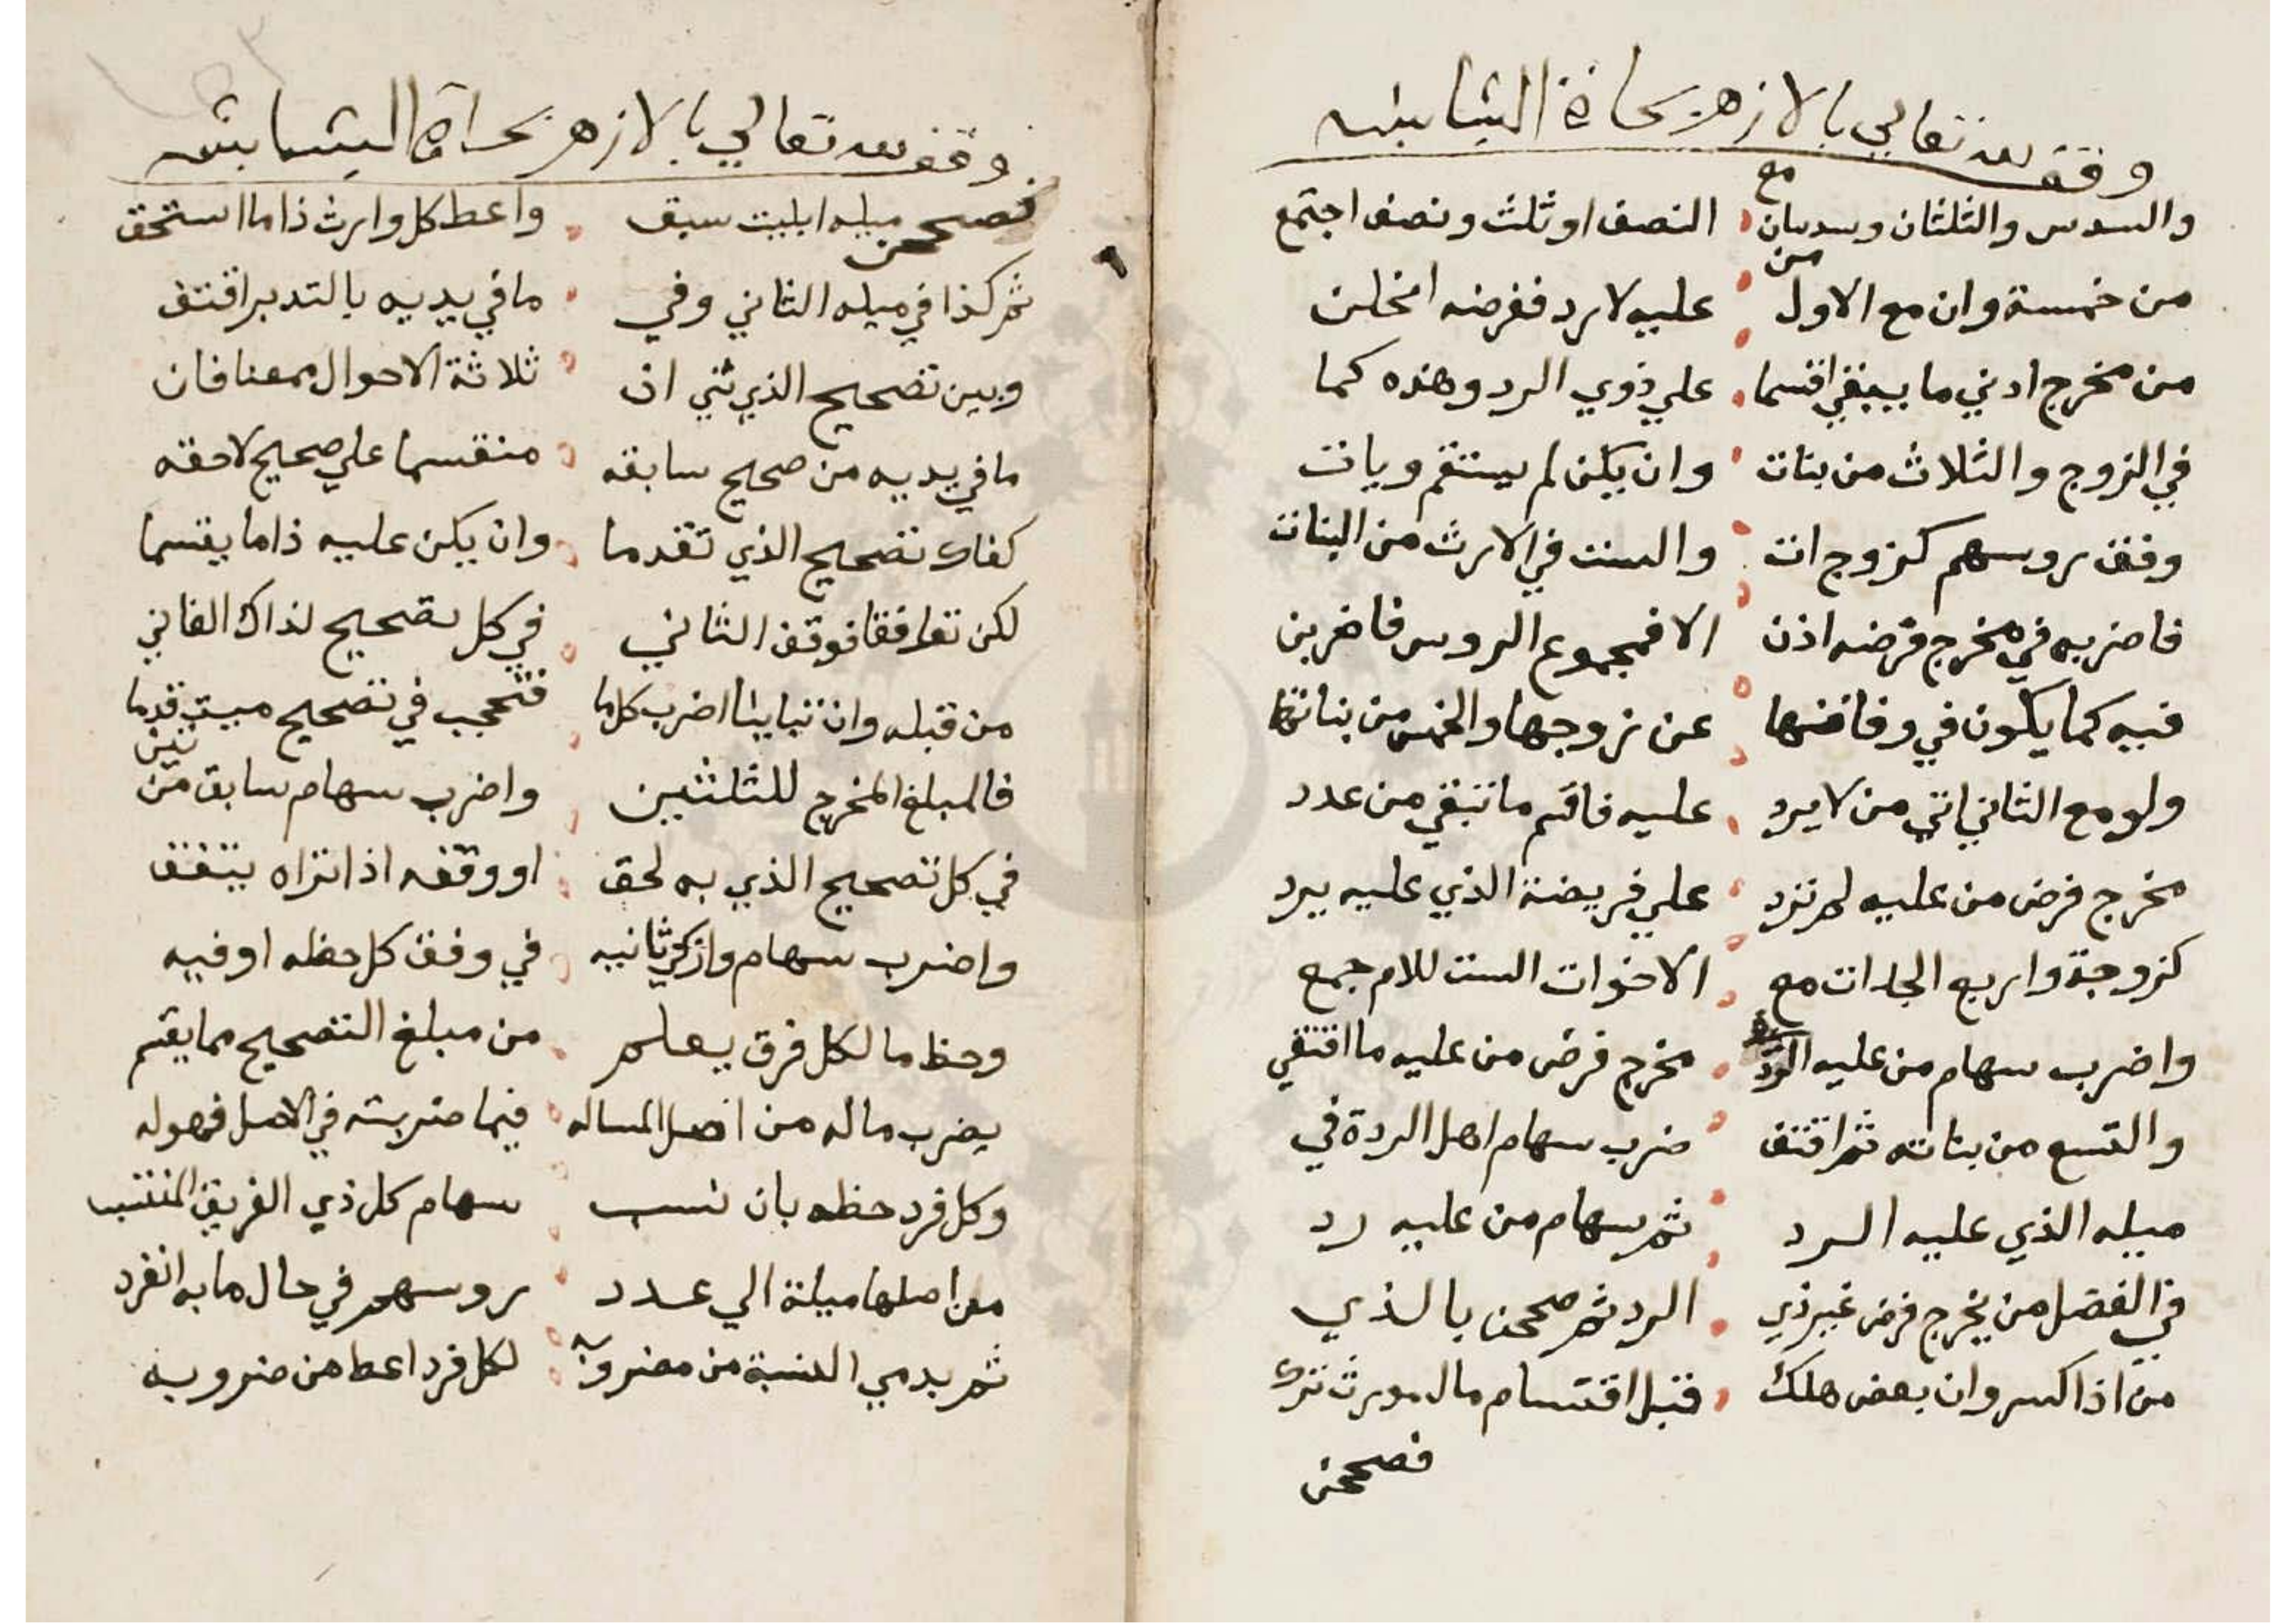 وقف لله تعالي بالازهر بحارة الشابشه
والسدس والثلثان وسدسان مع النصف او ثلث ونصف اجتمع
من خمسة وان مع الاول من عليه لا رد ففرضه اخلن
من مخرج ادني ما يبقي اقسما علي ذوي الرد وهذه كما
في الزوج والثلاث من بنات وان يكن لم يستقم ويات
وفق روسهم كزوج ات والست في الارث من البنات
فاضربه في مخرج فرضه اذن الا فمجموع الروس فاضربن
فيه كما يكون في وفاتها عن زوجها والخمس من بناتها
ولو مع الثاني اتي من لا يرد عليه فاقسم ما تبقي من عدد
مخرج فرض من عليه لم ترد علي فريضة الذي عليه يرد
كزوجة واربع الجدات مع الاخوات الست للام جمع
واضرب سهام من عليه الرد مخرج فرض من عليه ما اقتفي
والتسع من بناته ثم اقتف ضرب سهام اهل الردة في
ميله الذي عليه الرد ثم سهام من عليه رد
في الفضل من يخرج فرض غير ذي الرد ثم صححن بالذي
من اذا كسر وان بعض هلك قبل اقتسام مال مورث ترك
فصححن
وقف لله تعالي بالازهر بحارة الشابشه
فصححن ميله ابليت سبق واعط كل وارث ذا ما استحق
ثم كذا في ميله الثاني وفي ما في يديه بالتدبر اقتف
وبين تصحيح الذي ثني ان ثلاثة الاحوال معنا فان
ما في يديه من صحيح سابقه منقسما علي صحيح لاحقه
كفاك تصحيح الذي تقدما وان يكن عليه ذا ما يقسما
لكن توافقا فوفق الثاني في كل تصحيح لذاك الفاني
من قبله وان تباينا اضرب كلما فتحجب في تصحيح ميت قدما
فالمبلغ المخرج للثلثين واضرب سهام سابق من تين
في كل تصحيح الذي به لحق او وفقه اذا تراه يتفق
واضرب سهام ثانيه في وفق كل حظه او فيه
وحظ ما لكل فرق يعلم من مبلغ التصحيح مما يقسم
يضرب ماله من اصل المساله فيما ضربته في الاصل فهو له
وكل فرد حظه بان نسب سهام كل ذي الفريق المنتسب
من اصلها ميلة الي عدد روسهم في حال ما به انفرد
ثم بدمي النسبة من مضروبه لكل فرد اعط من ضروبه